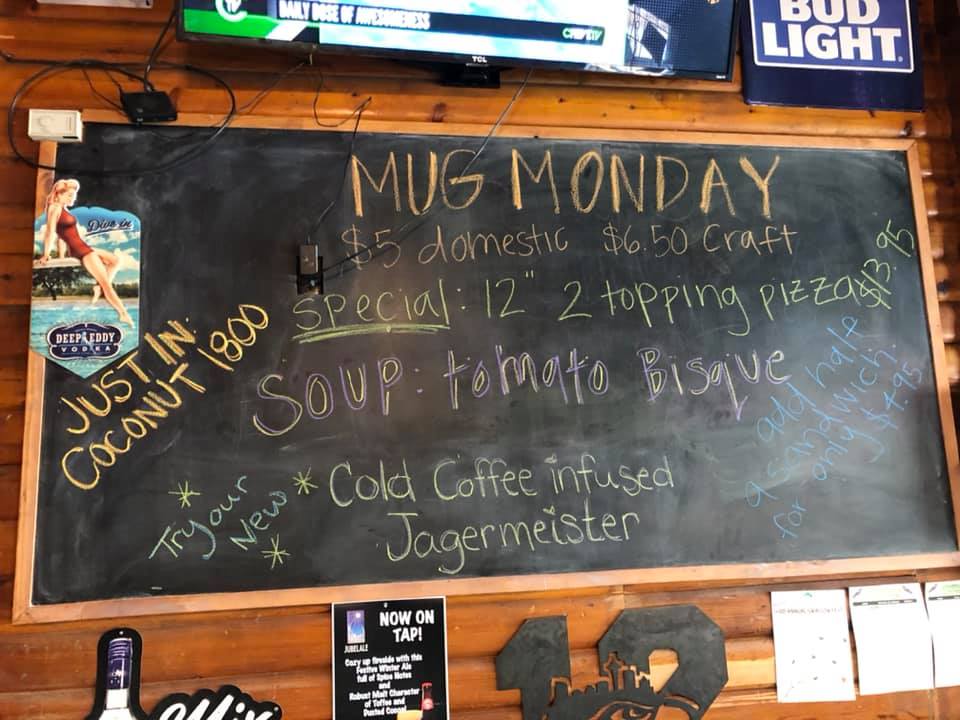 DAILY DOSE OF AWESOMENESS
TCL
BUD
LIGHT
MUG MONDAY
$5 domestic $6.50 Craft
special: 12" 2 topping pizza $13.95
Soup: tomato Bisque
add half
a sandwich
for only $4.95
Dive in
DEEP EDDY
VODKA
JUST IN:
COCONUT 1800
Try our
New
Cold Coffee infused
Jagermeister
JUBELALE
NOW ON
TAP!
Cozy up fireside with this
Festive Winter Ale
full of Spice Notes
and
Robust Malt Character
of Toffee and
Mix
12